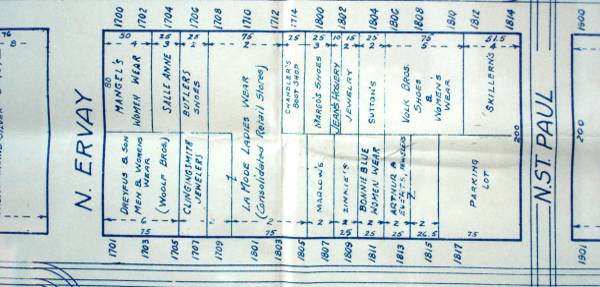 1700
1702
1704
1706
1708
1710
1712
1714
1800
1802
1804
1806
1808
1810
1812
1814
76
8
50
25
25
75
25
25
10
15
25
75
51.5
4
2
2
2
3
2
2
5
4
1900
N. ERVAY
80
MANGEL'S
WOMEN WEAR
SALLE ANNE
BUTLER'S
SHOES
LA MODE LADIES WEAR
(CONSOLIDATED RETAIL STORES)
CHANDLER'S
BOOT SHOP
MARGO'S SHOES
JEAN'S HOSIERY
JEWELRY
SUTTON'S
VOLK BROS.
SHOES
&
WOMEN'S
WEAR
SKILLERN'S
200
N. ST. PAUL
200
DREYFUS & SON
MEN & WOMENS
WEAR
(WOOLF BROS.)
CLINGINGSMITH
JEWELERS
7
MARLOW'S
ZINKIE'S
BONNIE BLUE
WOMEN WEAR
ARTHUR A
EVERTS, JEWELERS
7
PARKING
LOT
6
2
6
2
2
2
2
2
75
75
25
25
25
26.5
75
1701
1703
1705
1707
1709
1801
1803
1805
1807
1809
1811
1813
1815
1817
1901